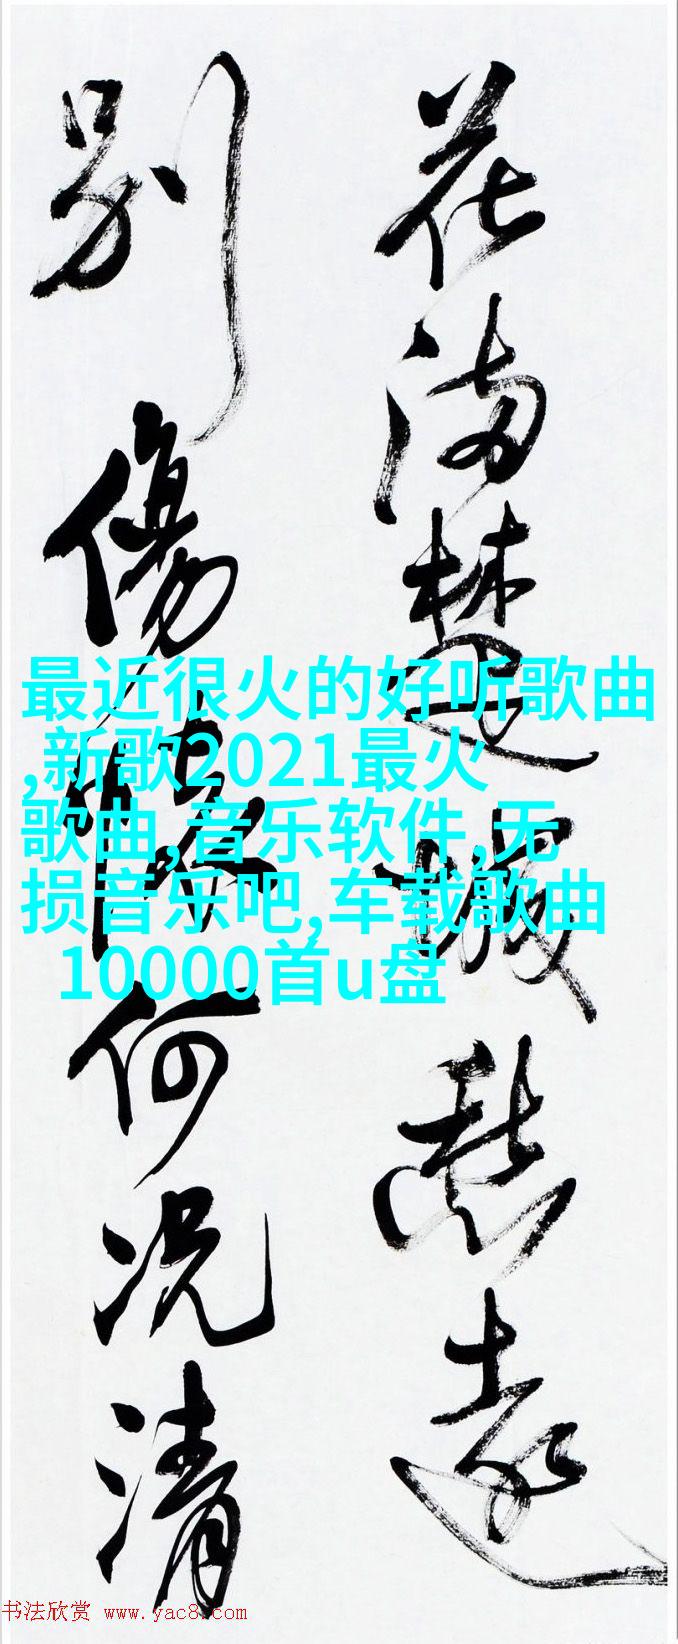 花满楚城愁远
别傷何况清
最近很火的好听歌曲
,新歌2021最火
歌曲,音乐软件,无
损音乐吧,车载歌曲
10000首u盘
书法欣赏 www.yac8.com